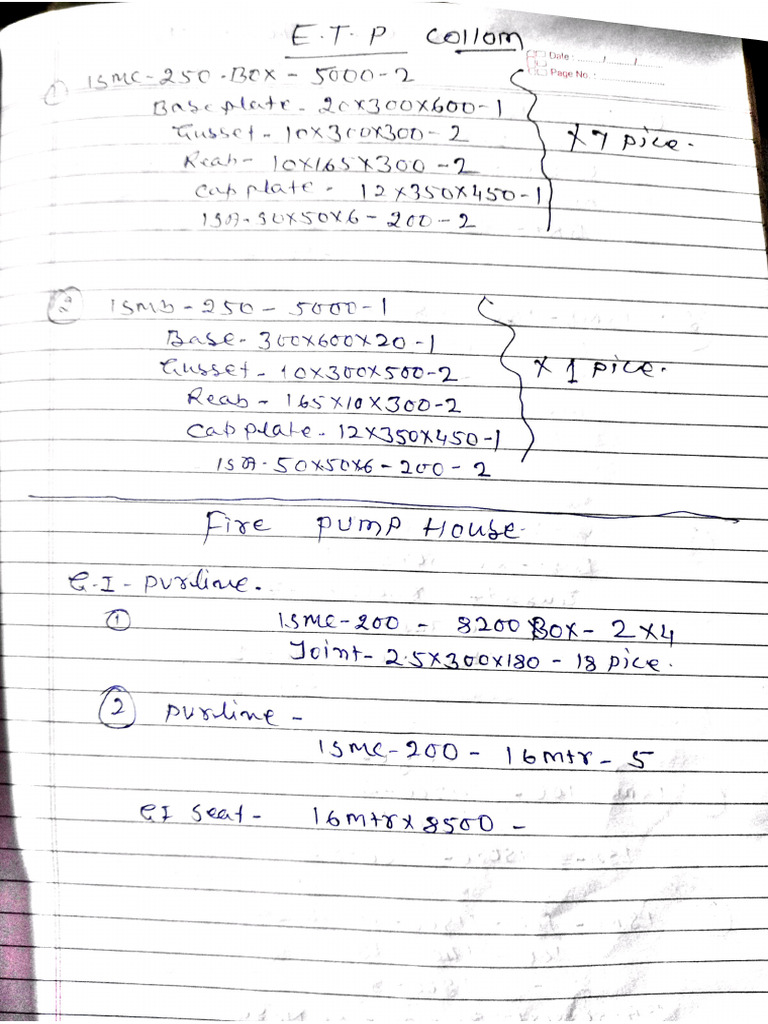 E.T.P Collom
Date : ......../......../........
Page No. : ........................
① ISMC-250-BOX - 5000-2
Base plate - 20x300x600-1
Gusset - 10x300x300-2
Reab - 10x165x300-2
Cap plate - 12x350x450-1
ISA-50x50x6-200-2
x 7 pice.
② ISMb-250-5000-1
Base-300x600x20-1
Gusset-10x300x500-2
Reab-165x10x300-2
Cap plate-12x350x450-1
ISA-50x50x6-200-2
x 1 pice.
Fire PUMP HOUSE
G.I-purline.
① ISMC-200 - 8200 BOX-2x4
Joint-2.5x300x180-18 pice.
② purline -
ISMC-200-16mtr-5
GI Seat- 16mtrx8500-